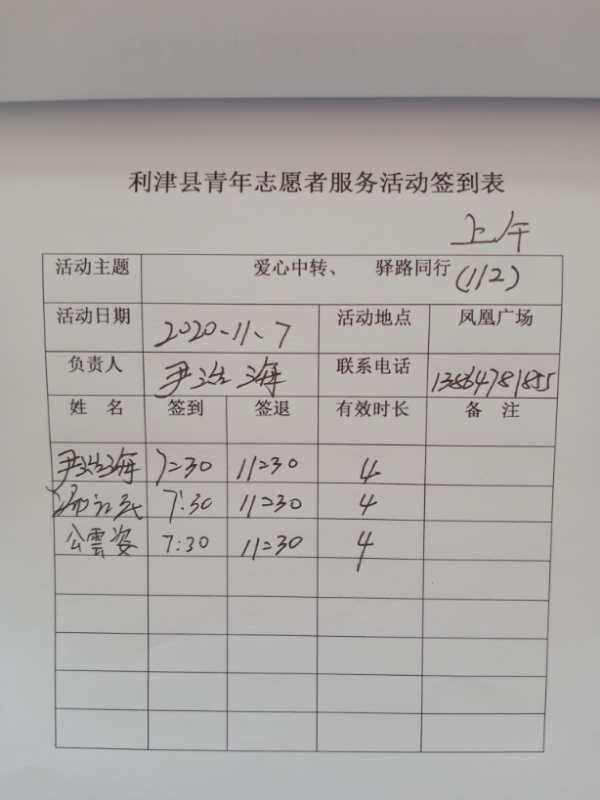 利津县青年志愿者服务活动签到表
上午
活动主题 爱心中转、 驿路同行 (112)
活动日期 2020、11、7 活动地点 凤凰广场
负责人 尹海 联系电话 13864781855
姓 名 签到 签退 有效时长 备 注
尹海 7:30 11:30 4
7:30 11:30 4
公雲姿 7:30 11:30 4